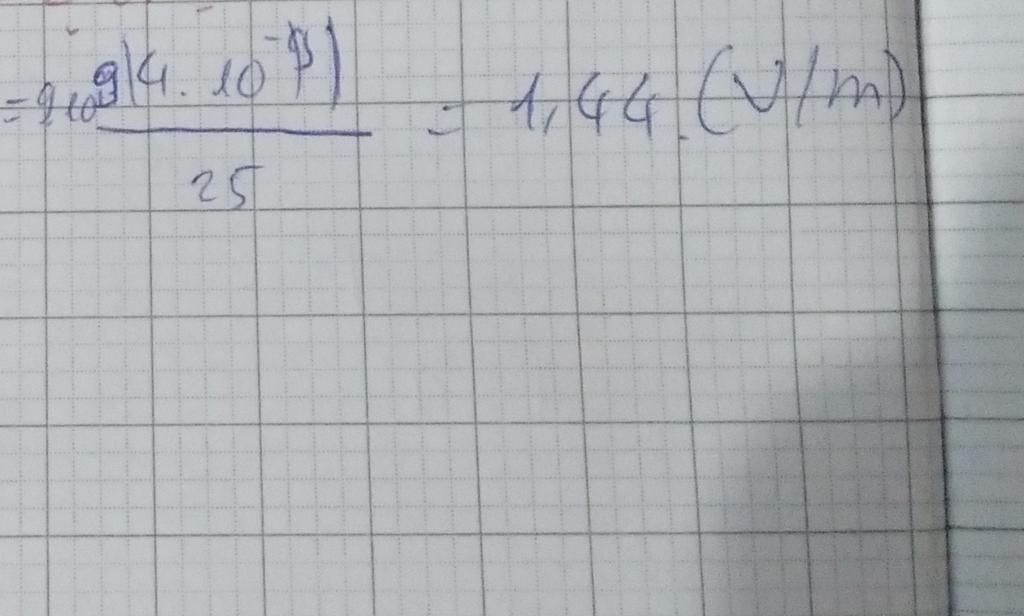 = 9 10⁹ |4. 10⁻ |
25
= 1,44. (V/m)